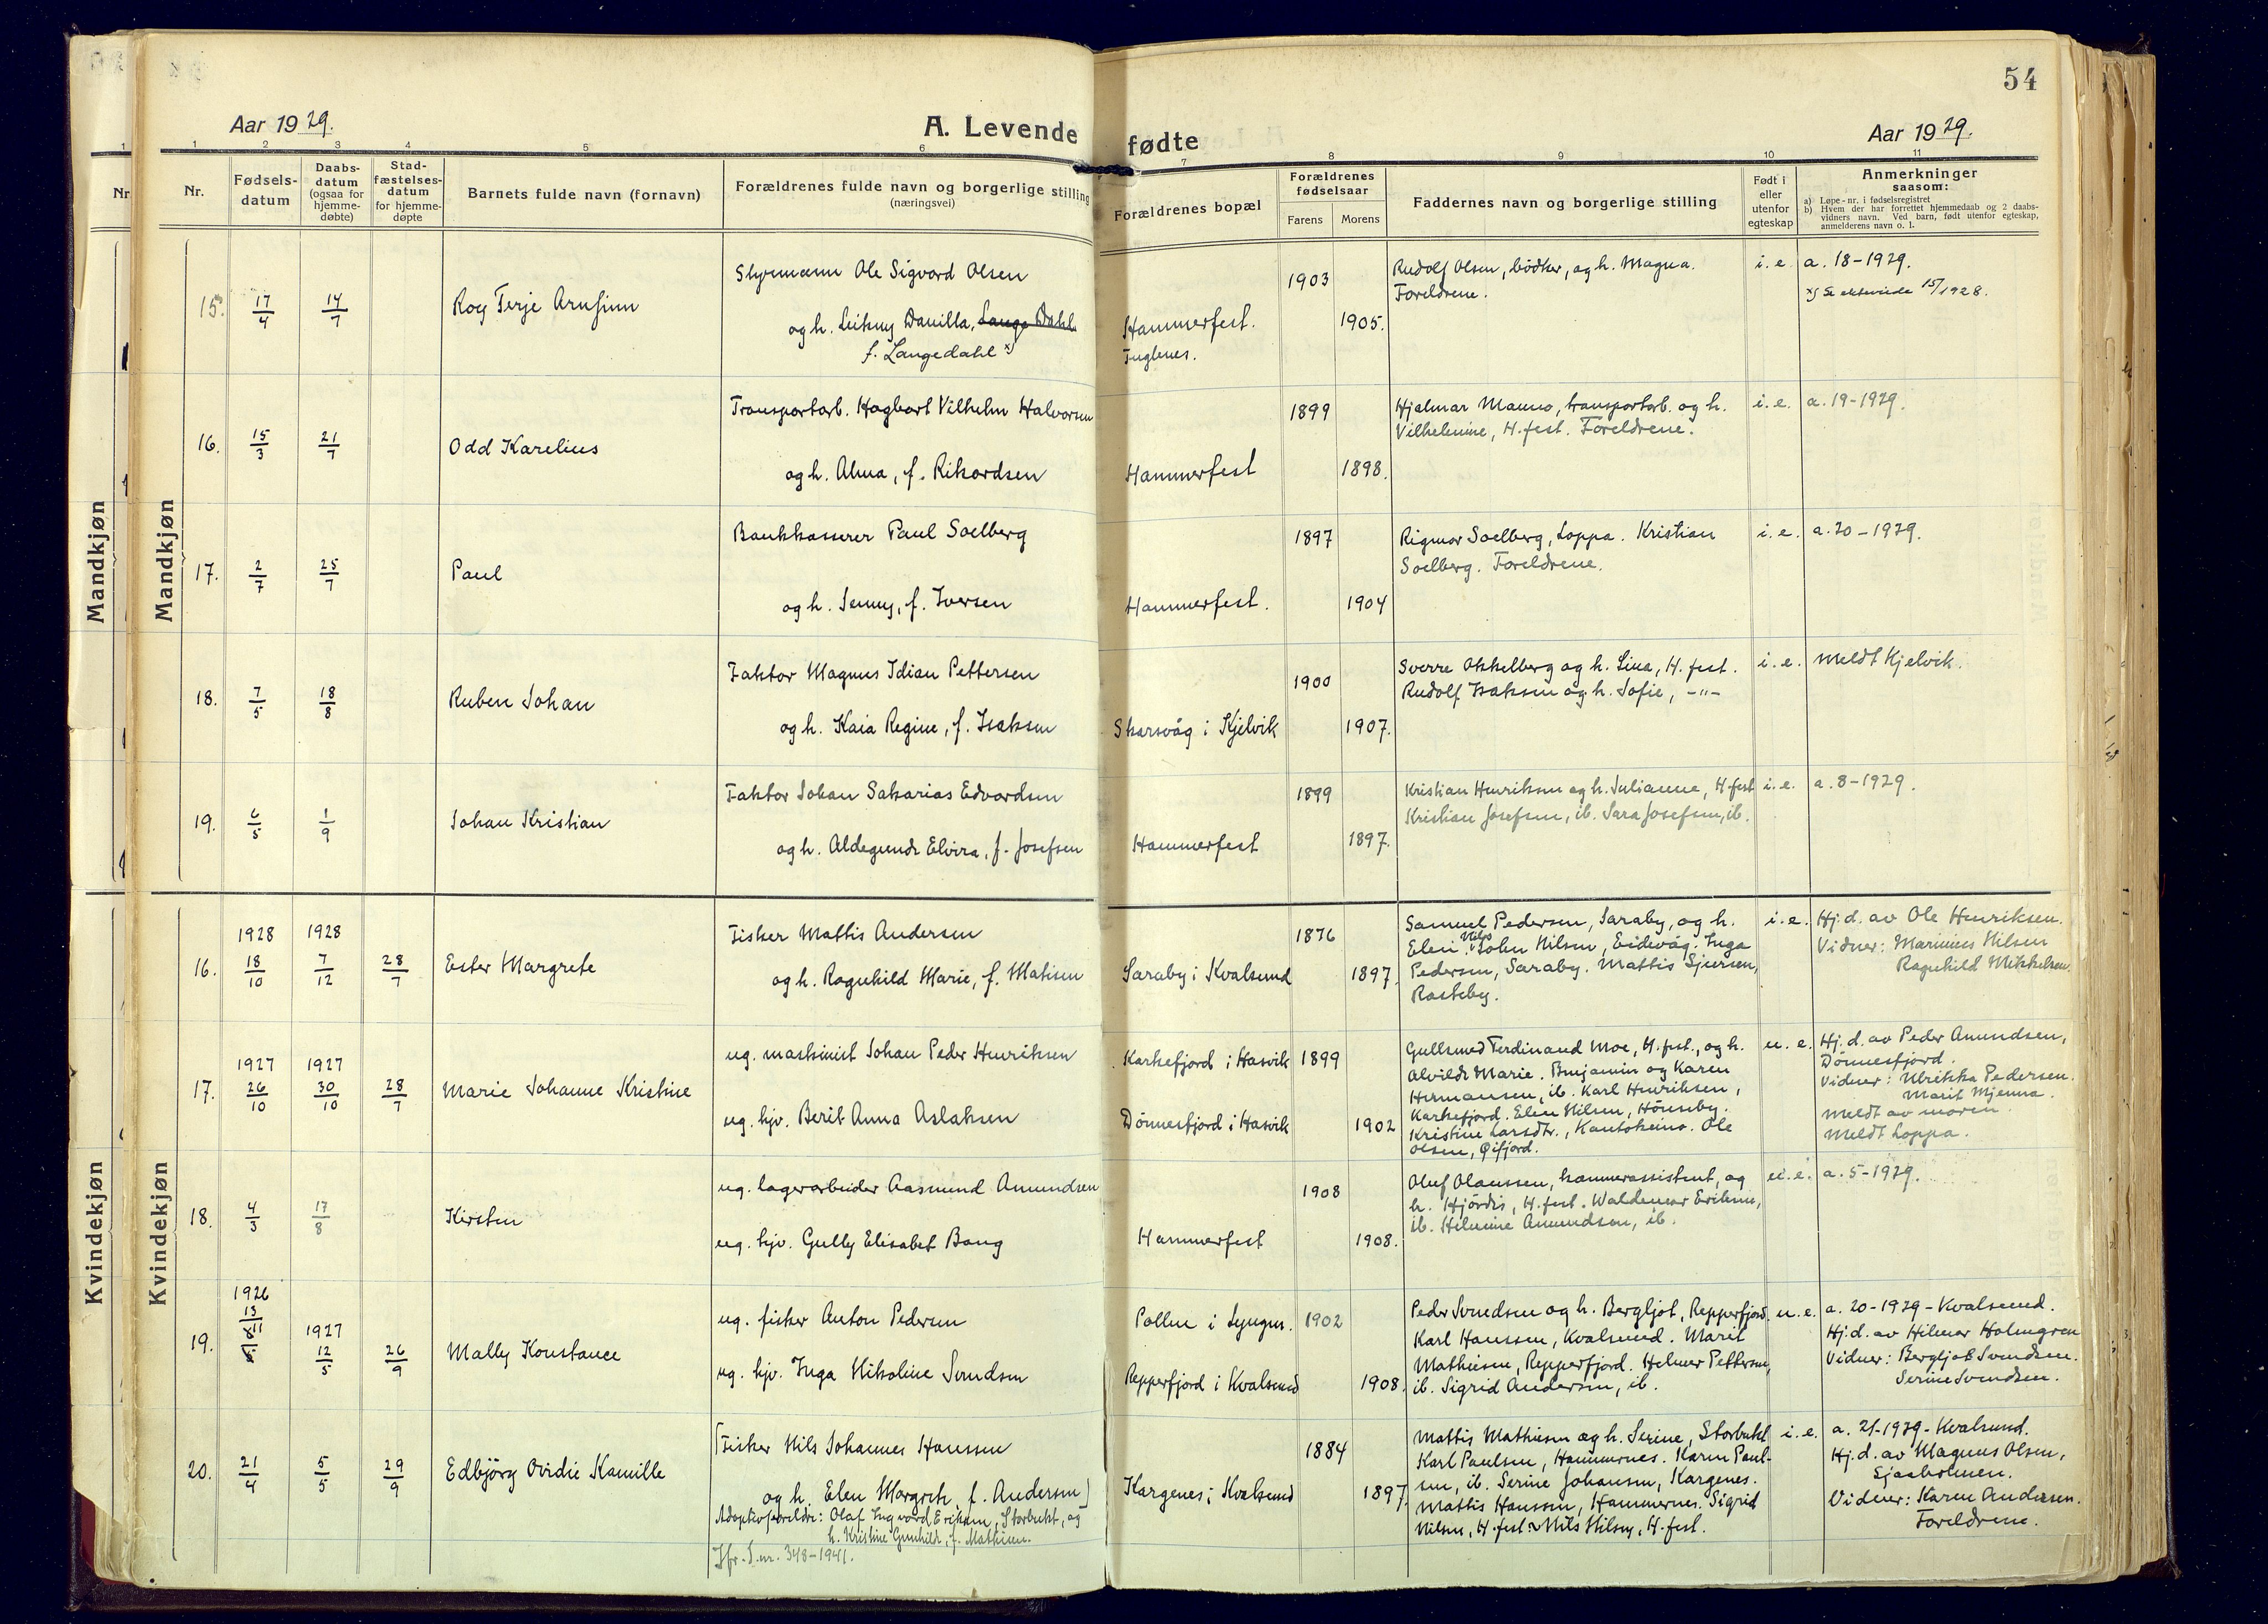 54
Aar 1929.
A. Levende fødte
Aar 1929.
1 2 3 4 5 6 7 8 9 10 11
Nr.
Fødsels-
datum
Daabs-
datum
(ogsaa for
hjemme-
døbte)
Stad-
fæstelses-
datum
for hjemme-
døpte
Barnets fulde navn (fornavn)
Forældrenes fulde navn og borgerlige stilling
(næringsvei)
Forældrenes bopæl
Forældrenes
fødselsaar
Farens Morens
Faddernes navn og borgerlige stilling
Født i
eller
utenfor
egteskap
Anmerkninger
saasom:
a) Løpe-nr. i fødselsregistret
b) Hvem der har forrettet hjemmedaab og 2 daabs-
vidners navn. Ved barn, født utenfor egteskap,
anmelderens navn o. l.
Mandkjøn
Mandkjøn
15. 17/4 14/7
Roy Terje Arnfinn
Styrmann Ole Sigvard Olsen
og h. Leikny Danilla, Lange Dahl
f. Langedahl x)
Hammerfest.
Fuglenes.
1903
1905.
Rudolf Olsen, bødker, og h. Magna.
Foreldrene.
i. e.
a. 18-1929.
x) Se 15/1928.
16. 15/3 21/7
Odd Karelius
Transportarb. Hagbart Vilhelm Halvorsen
og h. Alma, f. Rikardsen
Hammerfest
1899
1898.
Hjalmar Manno, transportarb. og h.
Vilhelmine, H.fest. Foreldrene.
i. e.
a. 19-1929.
17. 2/7 25/7
Paul
Bankkasserer Paul Soelberg
og h. Jenny, f. Iversen
Hammerfest.
1897
1904
Rigmor Soelberg, Loppa. Kristian
Soelberg. Foreldrene.
i. e.
a. 20-1929.
18. 7/5 18/8
Ruben Johan
Faktor Magnus Idian Pettersen
og h. Kaia Regine, f. Isaksen
Skarsvåg i Kjelvik
1900
1907.
Sverre Okkelberg og h. Lina, H.fest.
Rudolf Isaksen og h. Sofie, -"-
i. e.
Meldt Kjelvik.
19. 6/5 1/9
Johan Kristian
Faktor Johan Sakarias Edvardsen
og h. Aldegunde Elvira, f. Josefsen
Hammerfest
1899
1897.
Kristian Henriksen og h. Julianne, H.fest
Kristian Josefsen, ib. Sara Josefsen, ib.
i. e.
a. 8-1929.
Kvindekjøn
Kvindekjøn
16. 1928 18/10 1928 7/12 28/7
Ester Margrete
Fisker Mattis Andersen
og h. Ragnhild Marie, f. Matisen
Saraby i Kvalsund
1876
1897.
Samuel Pedersen, Saraby, og h.
Elen. Nils John Nilsen, Eidevåg. Inga
Pedersen, Saraby. Mattis Sjursen,
Rasteby.
i. e.
Hj.d. av Ole Henriksen.
Vidner: Marinius Nilsen
Ragnhild Mikkelsen.
17. 1927 26/10 1927 30/10 28/7
Marie Johanne Kristine
ug. maskinist Johan Peder Henriksen
ug. hjv. Berit Anna Aslaksen
Karkefjord i Hasvik
Dønnesfjord i Hasvik
1899
1902
Gullsmed Ferdinand Moe, H.fest., og h.
Alvilde Marie. Benjamin og Karen
Hermansen, ib. Karl Henriksen,
Karkefjord. Elen Nilsen, Hønseby.
Kristine Larsdtr., Kautokeino. Ole
Olsen, Øifjord.
u. e.
Hj.d. av Peder Amundsen,
Dønnesfjord.
Vidner: Ulrikka Pedersen.
Marit Mjenna.
Meldt av moren.
Meldt Loppa.
18. 4/3 17/8
Kirsten
ug. lagerarbeider Aasmund Amundsen
ug. hjv. Gully Elisabet Bang
Hammerfest
1908
1908.
Oluf Olaussen, kammerassistent, og
h. Hjørdis, H.fest. Waldemar Eriksen,
ib. Helmine Amundsen, ib.
u. e.
a. 5-1929.
19. 1926 13/11 1927 12/5 26/9
Mally Konstance
ug. fisker Anton Pedersen
ug. hjv. Inga Nikoline Svendsen
Pollen i Lyngen.
Repperfjord i Kvalsund
1902
1908.
Peder Svendsen og h. Bergljot, Repperfjord
Karl Hanssen, Kvalsund. Marit
Mathisen, Repperfjord. Helmer Pettersen,
ib. Sigrid Andersen, ib.
u. e.
a. 20-1929-Kvalsund.
Hj.d. av Hilmar Holmgren
Vidner: Bergljot Svendsen.
Serine Svendsen.
20. 21/4 5/5 29/9
Edbjørg Ovidie Kamille
[Fisker Nils Johannes Hanssen
og h. Elen Margrete, f. Andersen]
Adoptivforeldre: Olaf Ingvard Eriksen, Storbukt, og
h. Kristine Gunhilde, f. Mathisen.
Jfr. J.nr. 348-1941.
Kargenes i Kvalsund
1884
1897.
Mattis Mathisen og h. Serine, Storbukt
Karl Paulsen, Hammernes. Karen Paul-
sen, ib. Serine Johansen, Kargenes.
Mattis Hanssen, Hammernes. Sigrid
Nilsen, H.fest. Nils Nilsen, H.fest.
i. e.
a. 21-1929-Kvalsund.
Hj.d. av Magnus Olsen,
Sjaaholmen.
Vidner: Karen Andersen.
Foreldrene.